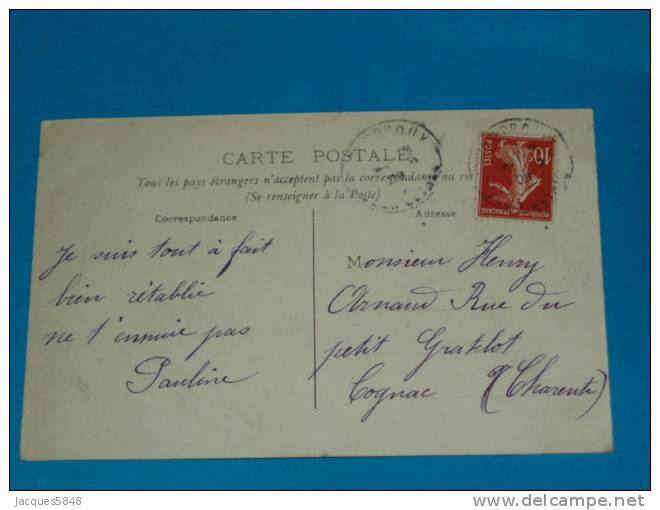 CARTE POSTALE
Tous les pays étrangers n'acceptent pas la correspondance au
(Se renseigner à la Poste)
Correspondance
Adresse
Je suis tout à fait
bien rétablie
ne t'ennuie pas
Pauline
Monsieur Henry
Arnaud Rue du
petit Gratelot
Cognac (Charente)
10c
POSTES
REPUBLIQUE FRANÇAISE
Jacques5848
delcampe.net